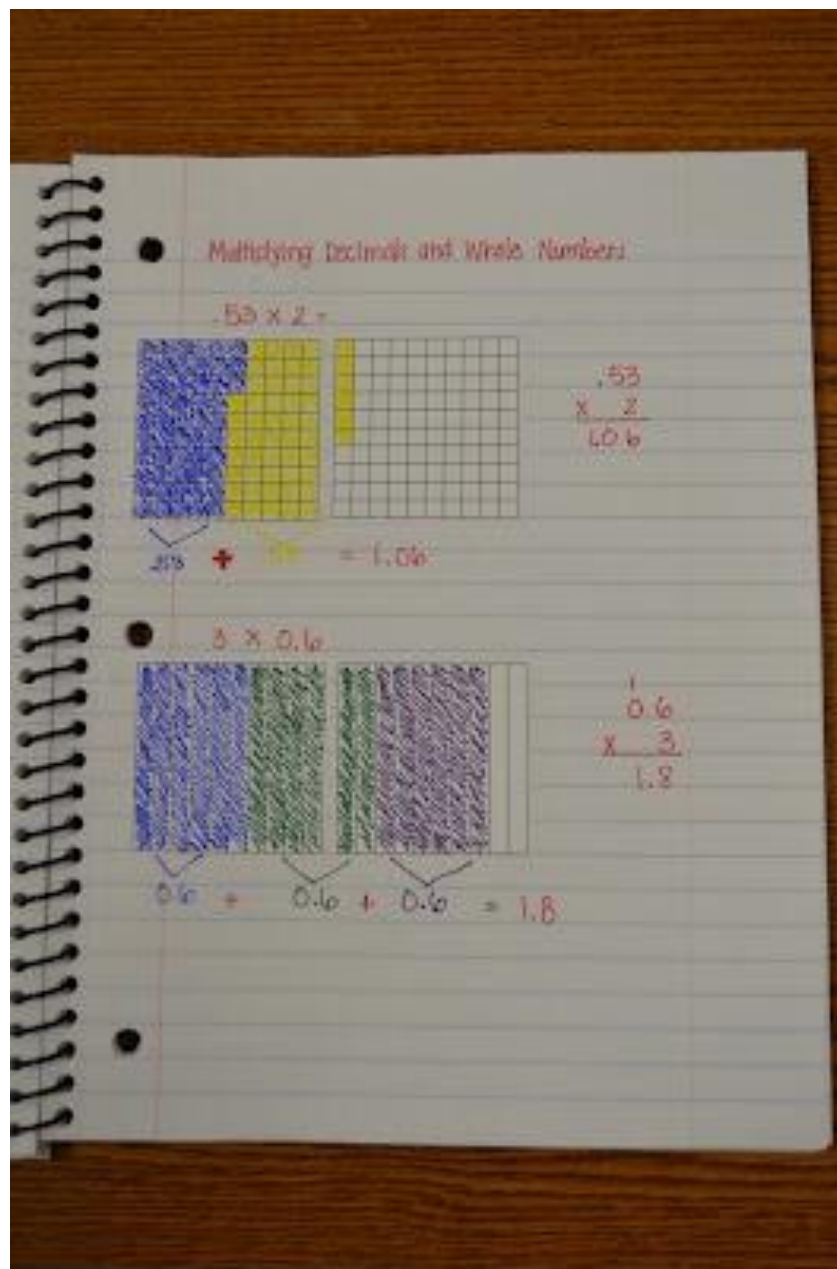 Multiplying Decimals and Whole Numbers
.53 x 2 =
.53
x 2
1.06
.53 + .53 = 1.06
3 x 0.6
1
0.6
x 3
1.8
0.6 + 0.6 + 0.6 = 1.8